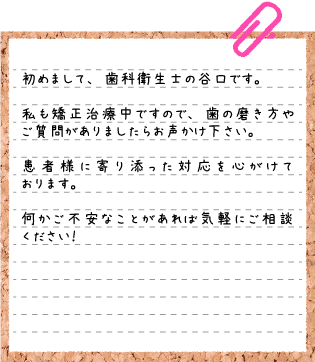 初めまして、歯科衛生士の谷口です。
私も矯正治療中ですので、歯の磨き方や
ご質問がありましたらお声かけ下さい。
患者様に寄り添った対応を心がけて
おります。
何かご不安なことがあれば気軽にご相談
ください!